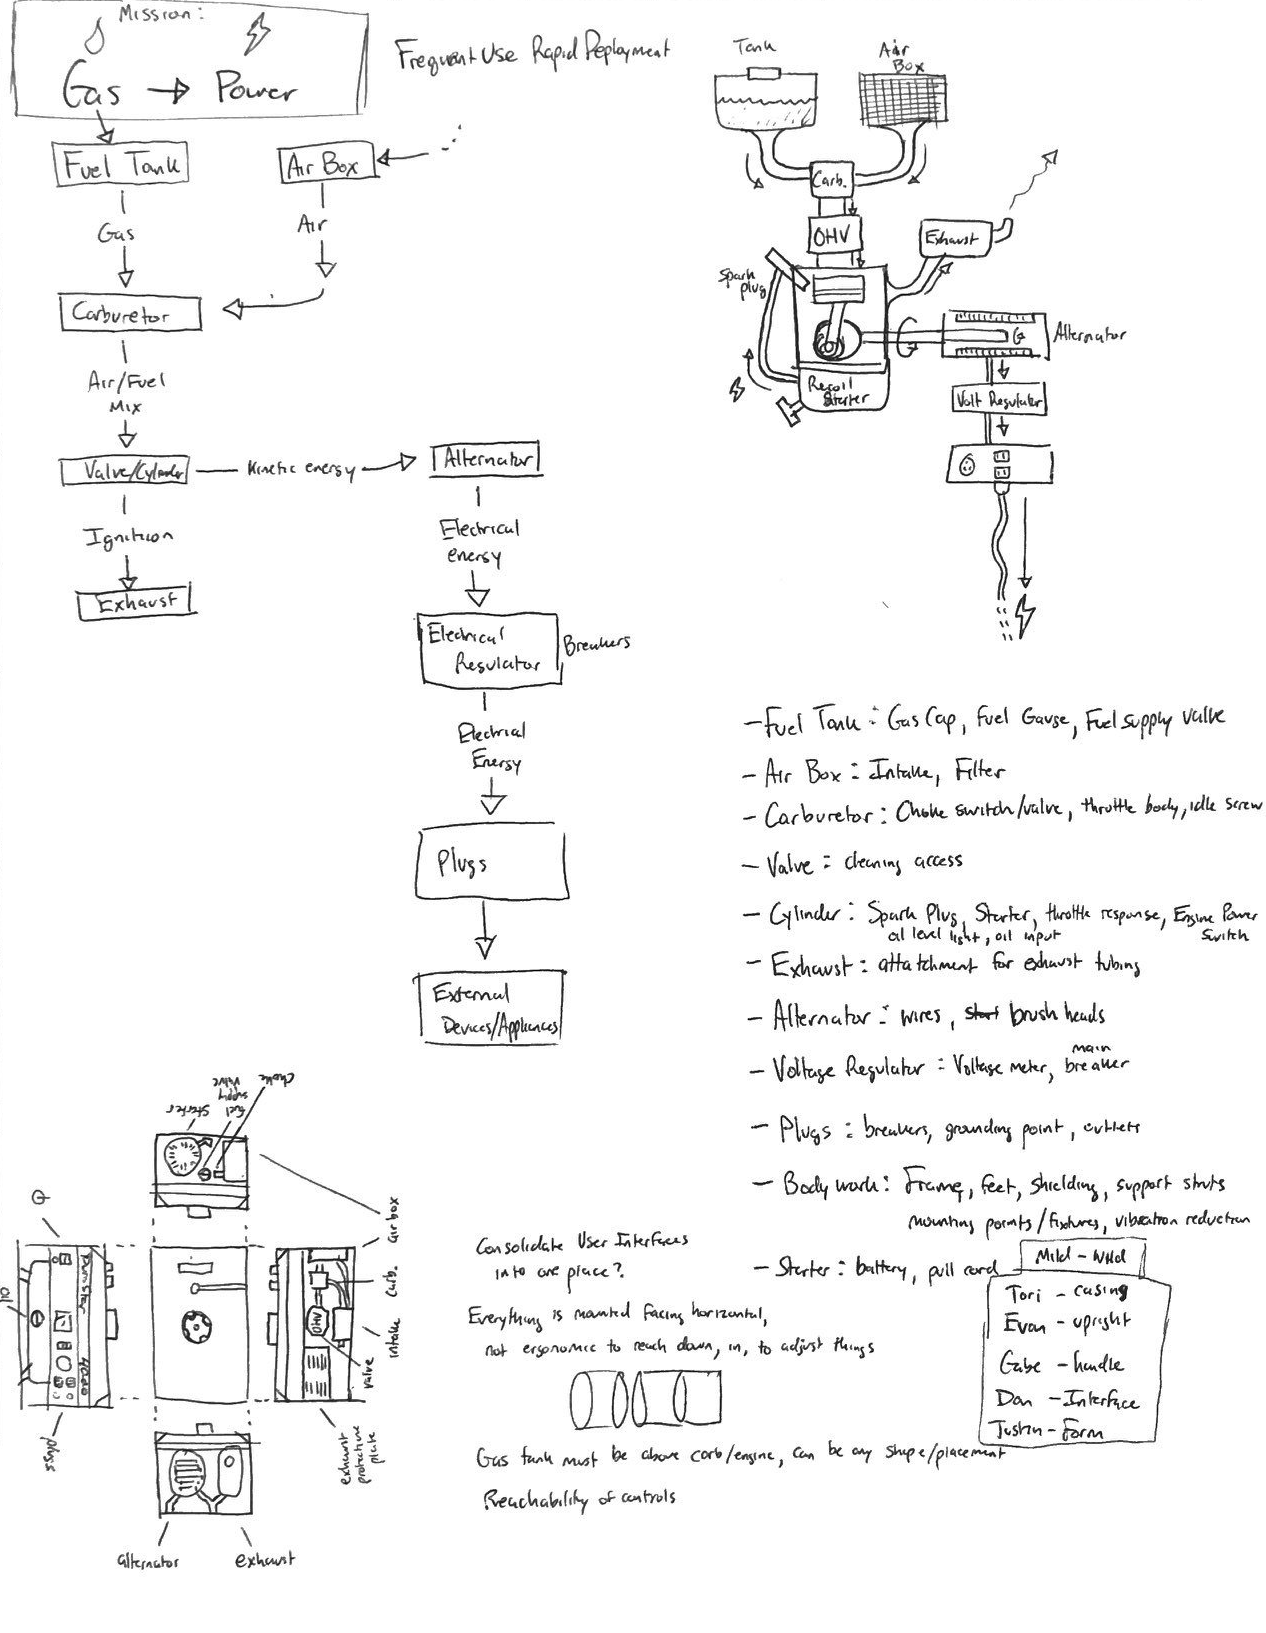 Mission:
Gas → Power
Frequent Use Rapid Deployment
Fuel Tank
Air Box
Gas
Air
Carburetor
Air/Fuel
Mix
Valve/Cylinder
Kinetic energy
Alternator
Ignition
Exhaust
Electrical
energy
Electrical
Regulator
Breakers
Electrical
Energy
Plugs
External
Devices/Appliances
Tank
Air
Box
Carb.
OHV
Exhaust
Spark
plug
Alternator
Recoil
Starter
Volt Regulator
- Fuel Tank : Gas Cap, Fuel Gauge, Fuel supply valve
- Air Box : Intake, Filter
- Carburetor : Choke switch/valve, throttle body, idle screw
- Valve : cleaning access
- Cylinder : Spark Plug, Starter, throttle response, Engine Power
Switch
oil level light, oil input
- Exhaust : attatchment for exhaust tubing
- Alternator : wires, start brush heads
- Voltage Regulator : Voltage meter, main
breaker
- Plugs : breakers, grounding point, outlets
- Body work : Frame, feet, shielding, support struts
mounting points/fixtures, vibration reduction
- Starter : battery, pull cord
Mild - Wild
Tori - casing
Evan - upright
Gabe - handle
Dan - Interface
Justin - Form
Consolidate User Interfaces
into one place?
Everything is mounted facing horizontal,
not ergonomic to reach down, in, to adjust things
Gas tank must be above carb/engine, can be any shape/placement
Reachability of controls
Starter
fuel
supply
valve
choke
air box
carb.
intake
valve
OHV
exhaust
protective
plate
oil
plugs
alternator
exhaust